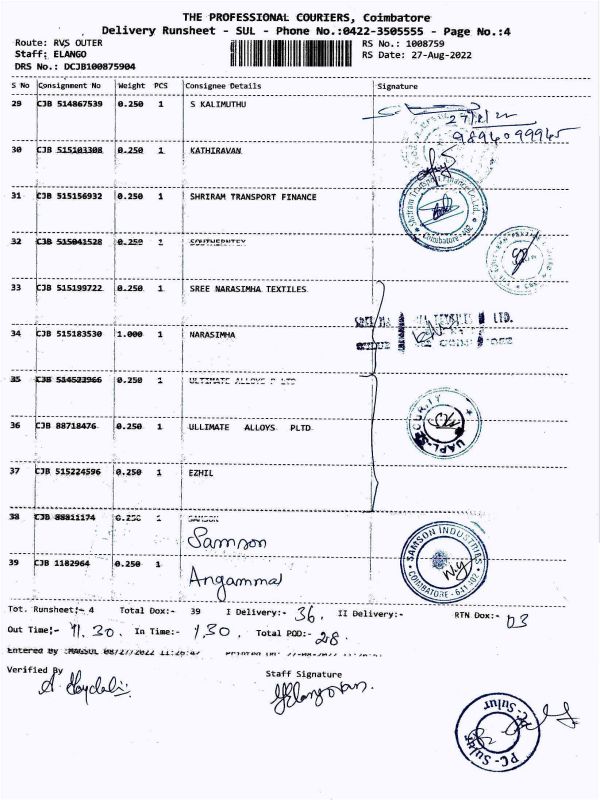 THE PROFESSIONAL COURIERS, Coimbatore
Delivery Runsheet - SUL - Phone No.:0422-3505555 - Page No.:4
Route: RVS OUTER
RS No.: 1008759
Staff: ELANGO
RS Date: 27-Aug-2022
DRS No.: DCJB100875904
S No Consignment No Weight PCS Consignee Details Signature
29 CJB 514867539 0.250 1 S KALIMUTHU
9894099945
30 CJB 515103308 0.250 1 KATHIRAVAN
31 CJB 515156932 0.250 1 SHRIRAM TRANSPORT FINANCE
Shriram Transport Finance Co. Ltd.
Coimbatore
32 CJB 515041528 0.250 1 SOUTHERNTEX
33 CJB 515199722 0.250 1 SREE NARASIMHA TEXTILES
34 CJB 515183530 1.000 1 NARASIMHA
35 CJB 514522966 0.250 1 ULTIMATE ALLOYS P LTD
36 CJB 88718476 0.250 1 ULLIMATE ALLOYS PLTD
UAPL-SECURITY
37 CJB 515224596 0.250 1 EZHIL
38 CJB 88811174 0.250 1 SAMSON
Samson
SAMSON INDUSTRIES
COIMBATORE - 641 402
39 CJB 1182964 0.250 1
Angammal
Tot. Runsheet:- 4 Total Dox:- 39 I Delivery:- 36. II Delivery:- RTN Dox:- 03
Out Time:- 11.30. In Time:- 1.30. Total POD:- 28.
Entered By :MAGSUL 08/27/2022 11:26:47 Printed On:
Verified By
Staff Signature
PC-Sulur
PC-Sulur